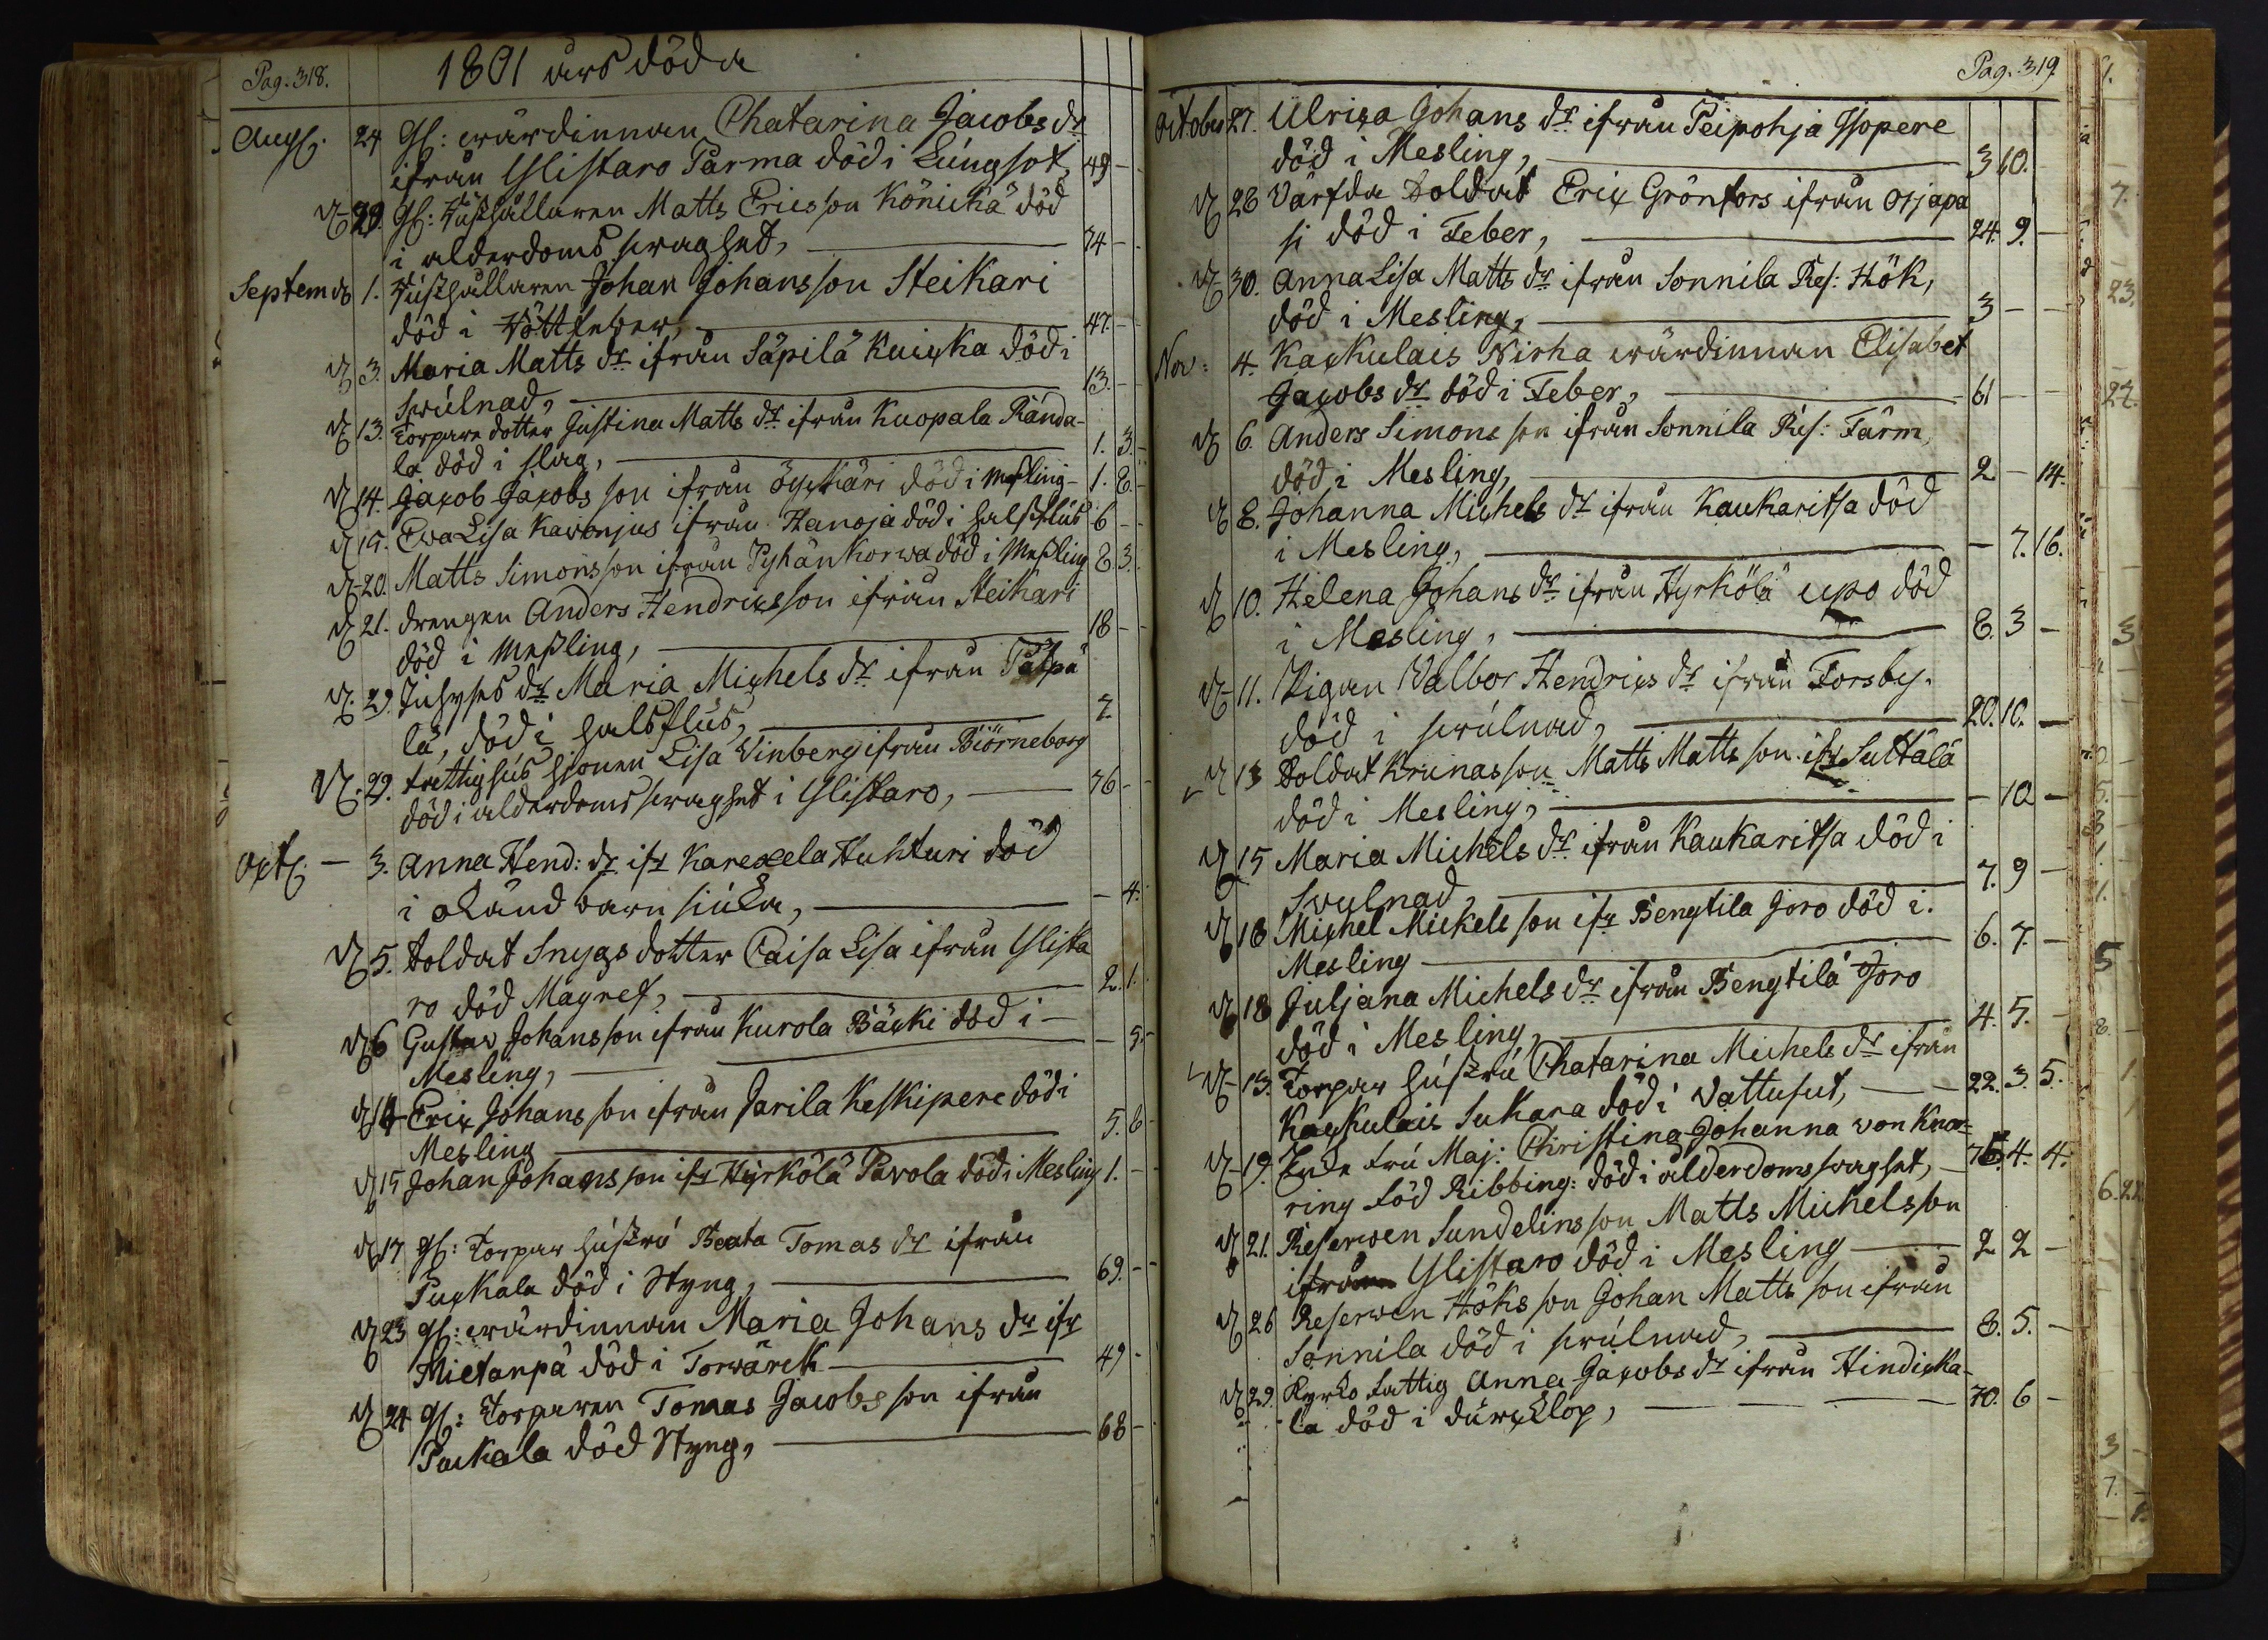 Pag. 318.
1801 års döda
Augs. 24 Gl: wärdinnan Chatarina Jacobs dr
ifrån Ylistaro Parma död i Lungsot, 49 -
D 29. Gl: Rusthållaren Matts Ericsson Könickä död
i ålderdoms swaghet, 74 -
Septemb 1. Rusthållaren Johan Johansson Steikari
död i Röttfeber, 47. -
D 3. Maria Matts dr ifrån Säpilä Kuicka död i
swulnad, 13. -
D 13. Torpare dotter Justina Matts dr ifrån Kuopala Randa-
la död i slag, 1. 3.
D 14. Jacob Jacobs son ifrån Öyckäri död i Messling - 1. 8.
D 15. Ewa Lisa Kavonjus ifrån Hanoja död i halsflus 6 -
D 20. Matts Simonsson ifrån Pyhänkorwa död i Messling 8 3.
D 21. drengen Anders Hendricsson ifrån Steikari
död i Messling, 18 -
D. 29. Inhyses dr Maria Michels dr ifrån Palpä
lä, död i halsflus, 7.
D. 29. fattighus hionen Lisa Winberg ifrån Biörneborg
död i ålderdoms swaghet i Ylistaro, 76 -
Oct. - 3. Anna Hend: dr ifr Karexela Huhturi död
i okänd barn siuka, - 4.
D 5. Soldat Snygs dotter Caisa Lisa ifrån Ylista
ro död Magref, 2. 1.
D 6 Gustav Johansson ifrån Kurola Bäcki död i -
Mesling, - 5.
D 14 Eric Johans son ifrån Jarila Keskipere död i
Mesling 5. 6
D 15 Johan Johans son ifr Hyrkölä Pavola död i Mesling 1. -
D 17 Gl: Torpar hustru Beata Tomas dr ifrån
Puckala död i Styng, 69. -
D 23 Gl: wärdinnan Maria Johans dr ifr
Mietanpä död i Torwärck 49 -
D 24 Gl: Torparen Tomas Jacobsson ifrån
Puckala död Styng, 68 -
Pag. 319
October 27. Ulrica Johans dr ifrån Peipohja Isopere
död i Mesling, 3 10.
D 28 Värfda Soldat Eric Grönfors ifrån Otjapa
si död i Feber, 24. 9. -
D 30. Anna Lisa Matts dr ifrån Sonnila Res: Hök,
död i Mesling, 3 - -
Nov: 4. Kackulais Nirha wärdinnan Elisabet
Jacobs dr död i Feber, 61 - -
D 6. Anders Simons son ifrån Sonnila Res: Farm,
död i Mesling, 2 - 14.
D 8. Johanna Michels dr ifrån Kaukaritsa död
i Mesling, - 7. 16.
D 10. Helena Johans dr ifrån Hyrkölä upo död
i Mesling, 8. 3 -
D 11. Pigan Valbor Hendrics dr ifrån Forsby.
död i swulnad, 20. 10. -
D 13 Soldat Krunas son Matts Matts son ifr Suttälä
död i Mesling, - 10 -
D 15 Maria Michels dr ifrån Kaukaritsa död i
Swulnad, 7. 9 -
D 18 Michel Mickels son ifr Bengtila Joro död i.
Mesling 6. 7. -
D 18 Juljana Michels dr ifrån Bengtilä Joro
död i Mesling, 4. 5. -
D 13. Torpar hustru Chatarina Michels dr ifrån
Kackulais Sukara död i Vattusut, - 22. 3. 5.
D 19. Enke fru Maj: Christina Johanna von Knor=
ring född Ribbing: död i ålderdomsswaghet, - 75. 4. 4.
D 21. Reserven Sundelins son Matts Michelsson
ifrån Ylistaro död i Mesling 2 2 -
D 26 Reserven Höks son Johan Matts son ifrån
Sonnila död i swulnad, 8. 5. -
D 29. Kyrko fattig Anna Jacobs dr ifrån Hindicka-
la död i durcklop, 70. 6 -